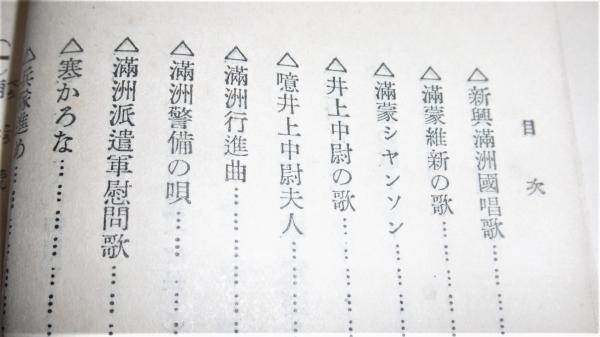 目次
△新興滿洲國唱歌……
△滿蒙維新の歌……
△滿蒙シヤンソン……
△井上中尉の歌……
△噫井上中尉夫人……
△滿洲行進曲……
△滿洲警備の唄……
△滿洲派遣軍慰問歌……
△寒かろな……
進め……